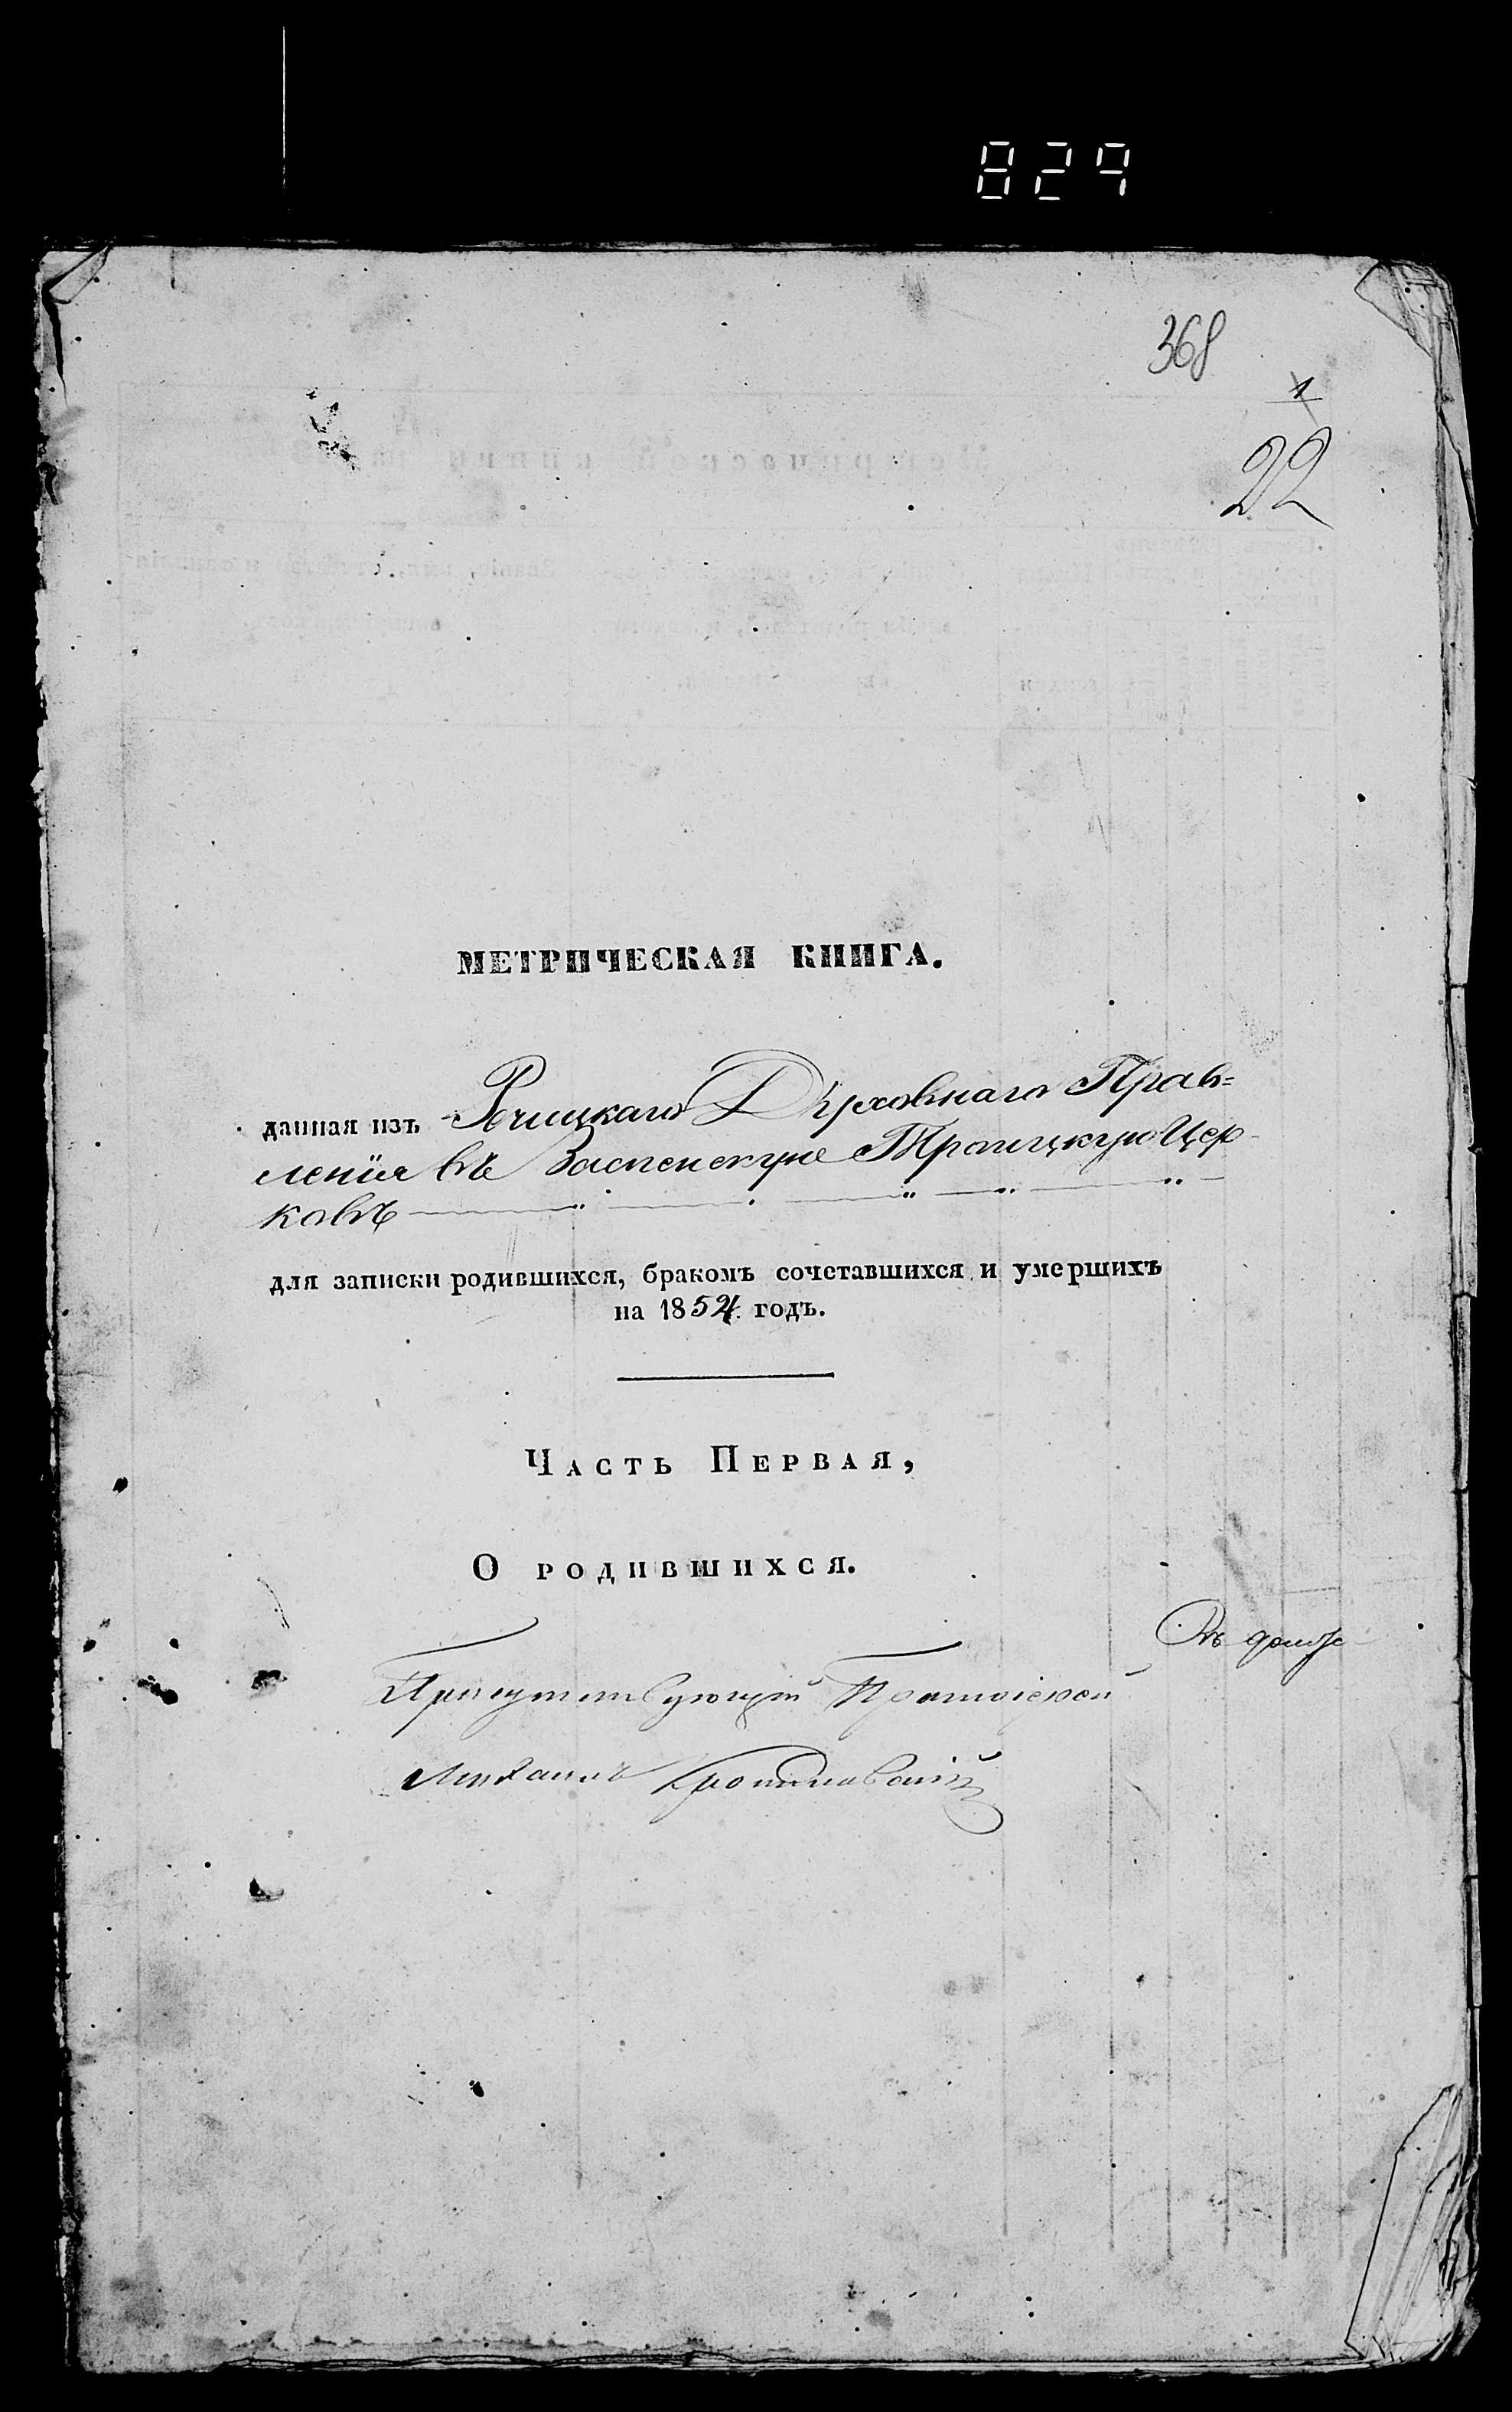 829
368
1
22
МЕТРИЧЕСКАЯ КНИГА.
данная изъ Речицкаго Духовнаго Прав=
ленія въ Заспенскую Троицкую Цер-
ковь
для записки родившихся, бракомъ сочетавшихся и умершихъ
на 1854. годъ.
Часть Первая,
О родившихся.
Присутствующій Протоіерей
Михаилъ